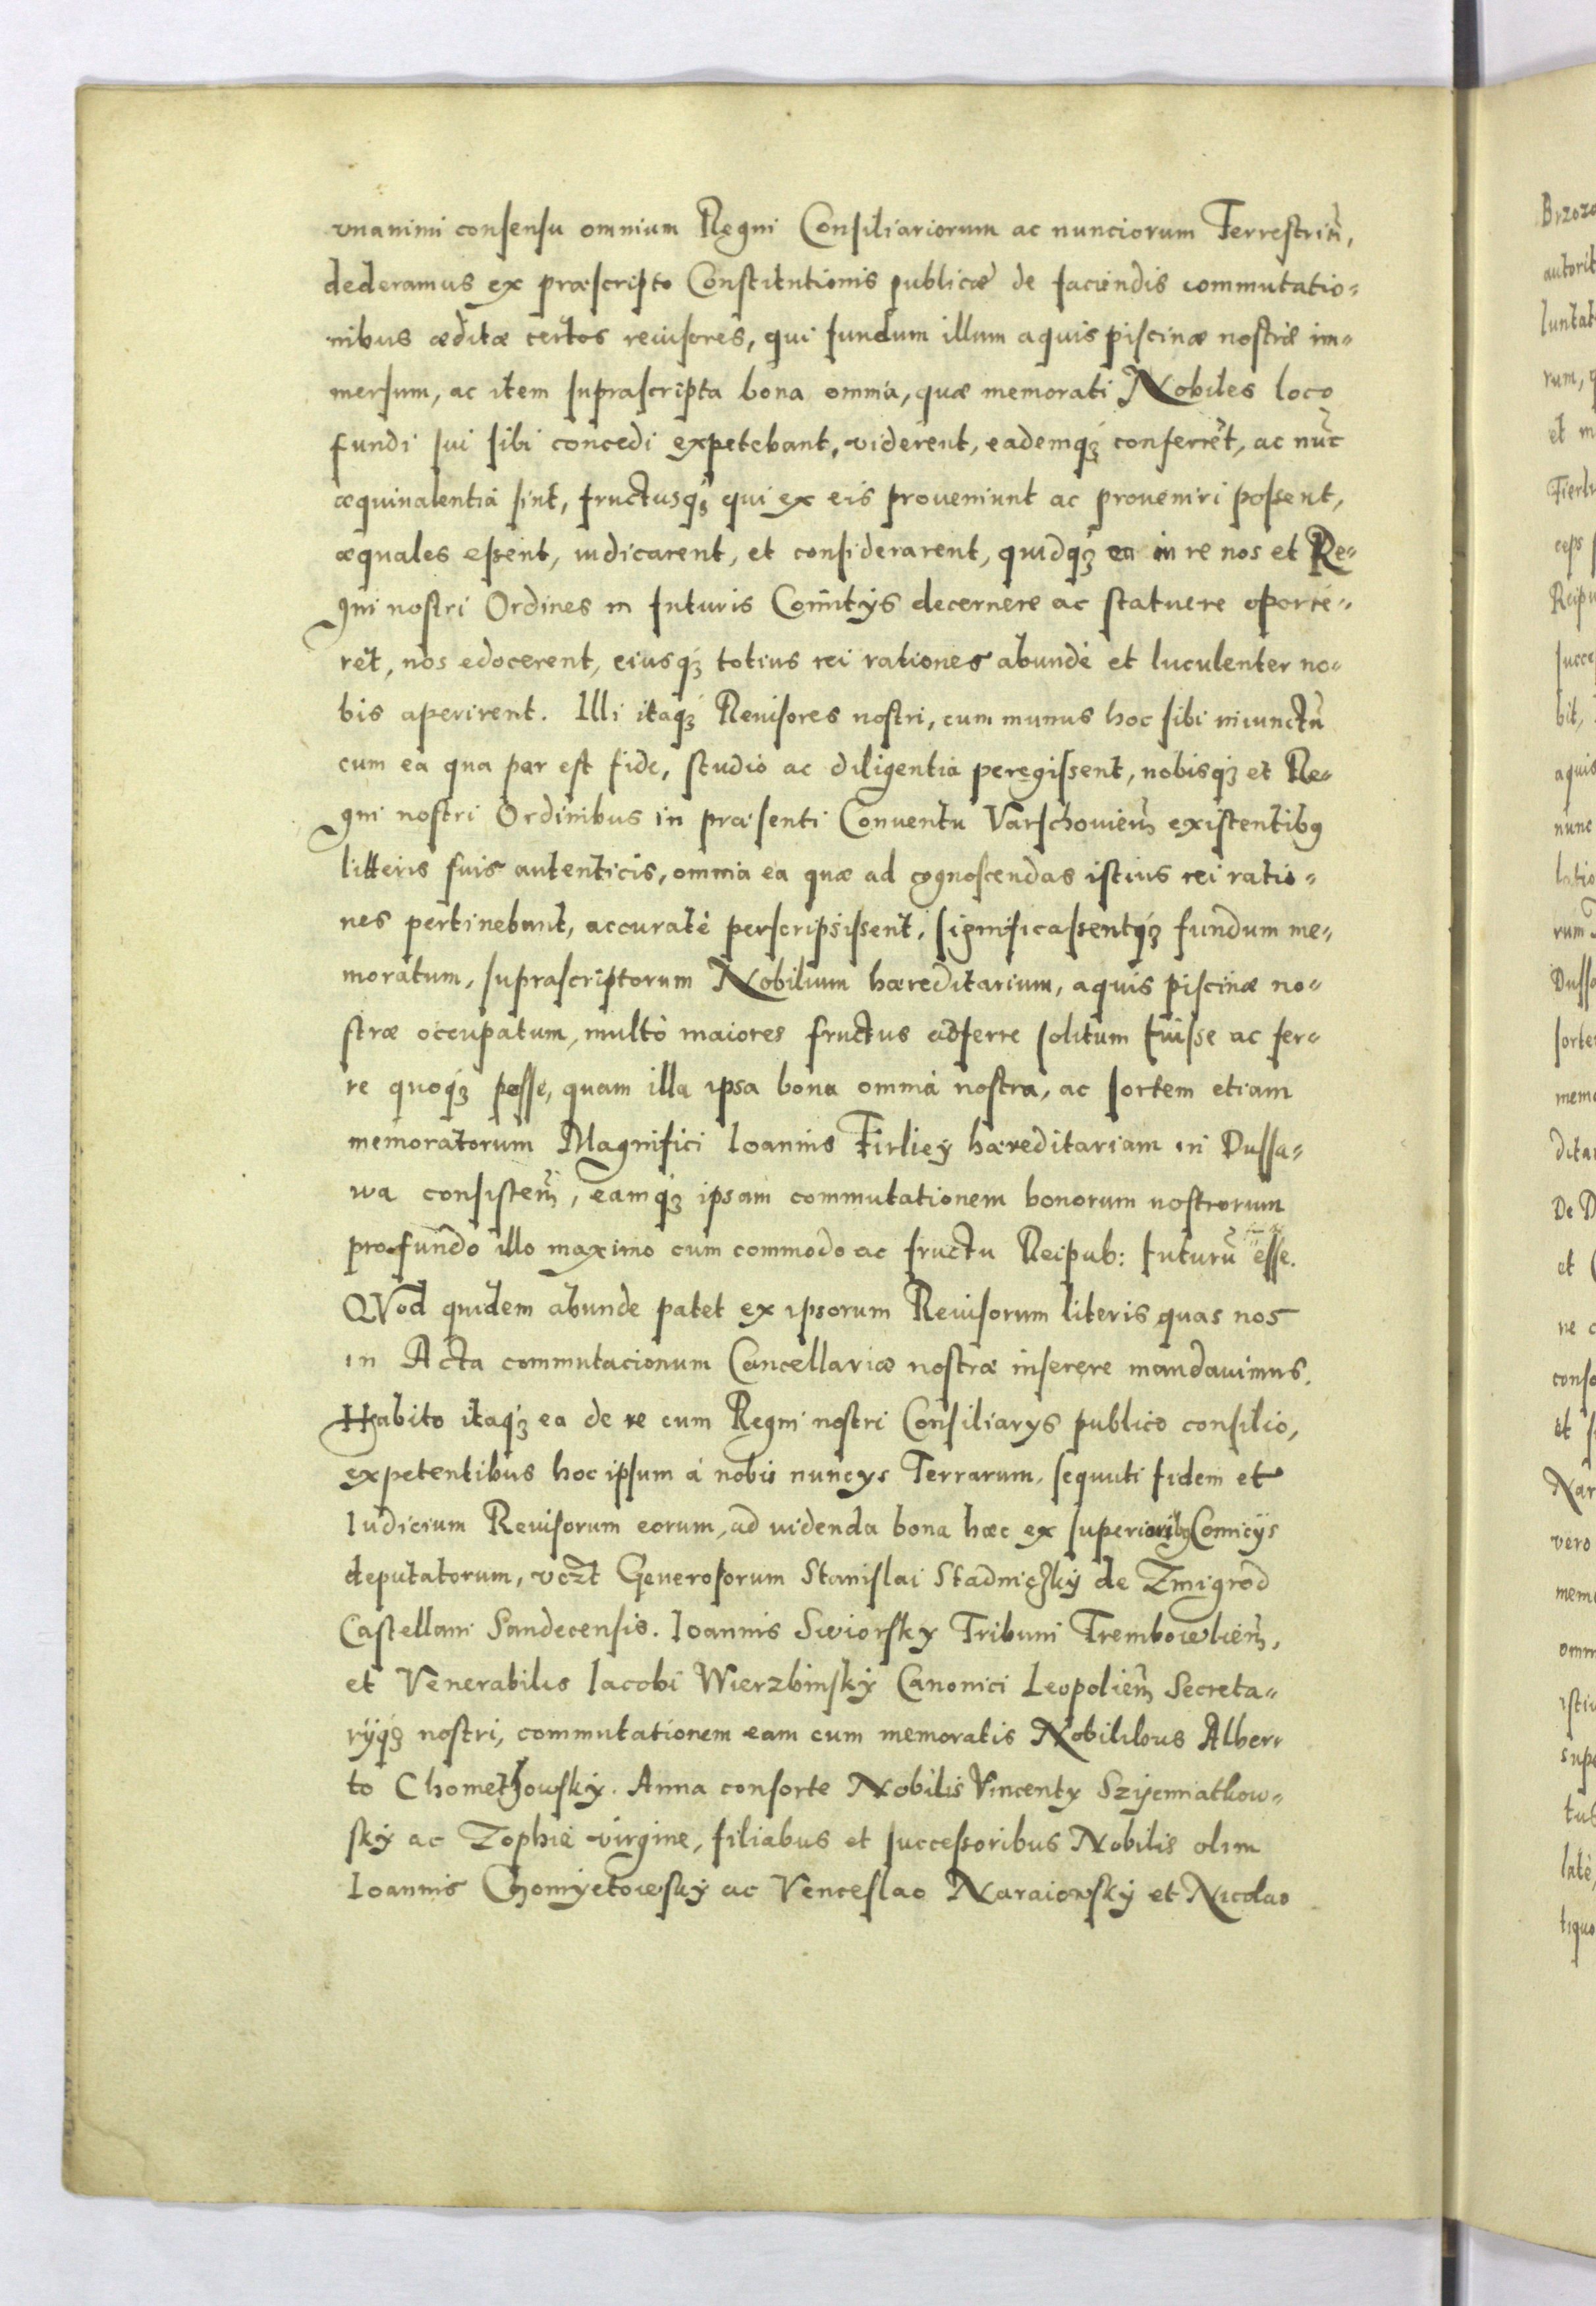 vnanimi consensu omnium Regni Consiliariorum ac nunciorum Terrestriũ,
dederamus ex præscripto Constitutionis publicæ de faciendis commutatio-
nibus æditæ certos reuisores, qui fundum illum aquis piscinæ nostræ im-
mersum, ac item suprascripta bona omnia, quæ memorati Nobiles loco
fundi sui sibi concedi expetebant, viderent, eademq́ꝫ conferrẽt, ac nũc
æquiualentia sint, fructusq́ꝫ qui ex eis proueniunt ac proueniri possent,
æquales essent, iudicarent, et considerarent, quidq́ꝫ ea in re nos et Re-
gni nostri Ordines in futuris Comitijs decernere ac statuere oporte-
rẽt, nos edocerent, eiusq́ꝫ totius rei rationes abundè et luculenter no-
bis aperirent. Illi itaq́ꝫ Reuisores nostri, cum munus hoc sibi iniunctũ
cum ea qua par est fide, studio ac diligentia peregissent, nobisq́ꝫ et Re-
gni nostri Ordinibus in præsenti Conuentu Varschouieñ existentibꝰ
litteris suis autenticis, omnia ea quæ ad cognoscendas istius rei ratio-
nes pertinebant, accuratè perscripsissent, significassentq́ꝫ fundum me-
moratum, suprascriptorum Nobilium hæreditarium, aquis piscinæ no-
stræ occupatum, multò maiores fructus adferre solitum fuisse ac fer-
re quoq́ꝫ posse, quam illa ipsa bona omnia nostra, ac sortem etiam
memoratorum Magnifici Ioannis Firliey hæreditariam in Dussa-
wa consisteñ, eamq́ꝫ ipsam commutationem bonorum nostrorum
pro fundo illo maximo cum commodo ac fructu Reipub: futurũ esse.
QVod quidem abunde patet ex ipsorum Reuisorum literis quas nos
in Acta commutacionum Cancellariæ nostræ inserere mandauimus.
Habito itaq́ꝫ ea de re cum Regni nostri Consiliarys publico consilio,
expetentibus hoc ipsum à nobis nuncys Terrarum, sequuti fidem et
Iudicium Reuisorum eorum, ad videnda bona hæc ex superioribꝰ Comicijs
deputatorum, vczt Generosorum Stanislai Stadniczky de Zmigrod
Castellani Sandecensis. Ioannis Swiorsky Tribuni Trembowlieñ,
et Venerabilis Iacobi Wierzbinsky Canonici Leopolieñ Secreta-
rijq́ꝫ nostri, commutationem eam cum memoratis Nobilibus Alber-
to Chomethowsky. Anna consorte Nobilis Vincenty Szijemiatkow-
sky ac Zophia virgine, filiabus et successoribus Nobilis olim
Ioannis Chomyetowsky ac Venceslao Naraiowsky et Nicolao